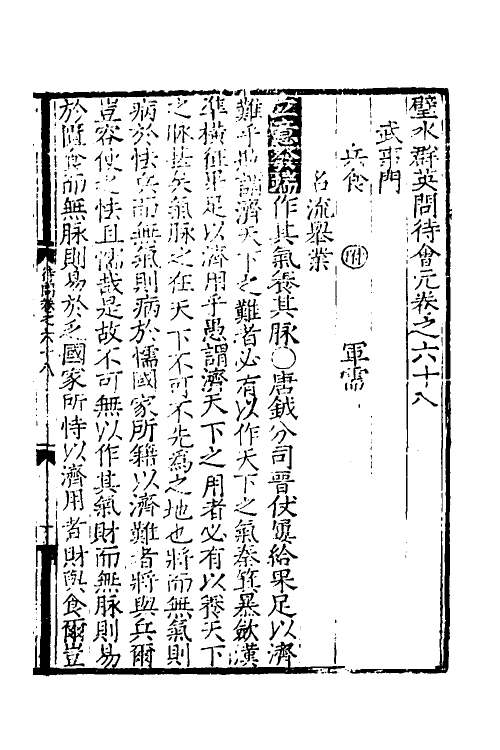 璧水群英問待會元卷之六十八
武事門
兵食 附 軍需
名流舉業
立意發端作其氣養其脉○唐鉞分司晉仗寔給果足以濟
難乎愚謂濟天下之難者必有以作天下之氣秦箕暴斂漢
準橫征果足以濟用乎愚謂濟天下之用者必有以養天下
之脉甚矣氣脉之在天下不可不先爲之地也將而無氣則
病於怏兵而無氣則病於懦國家所籍以濟難者將與兵爾
豈容使之怏且懦哉是故不可無以作其氣財而無脉則易
於匱食而無脉則易於乏國家所恃以濟用者財與食爾豈
待問卷之六十八